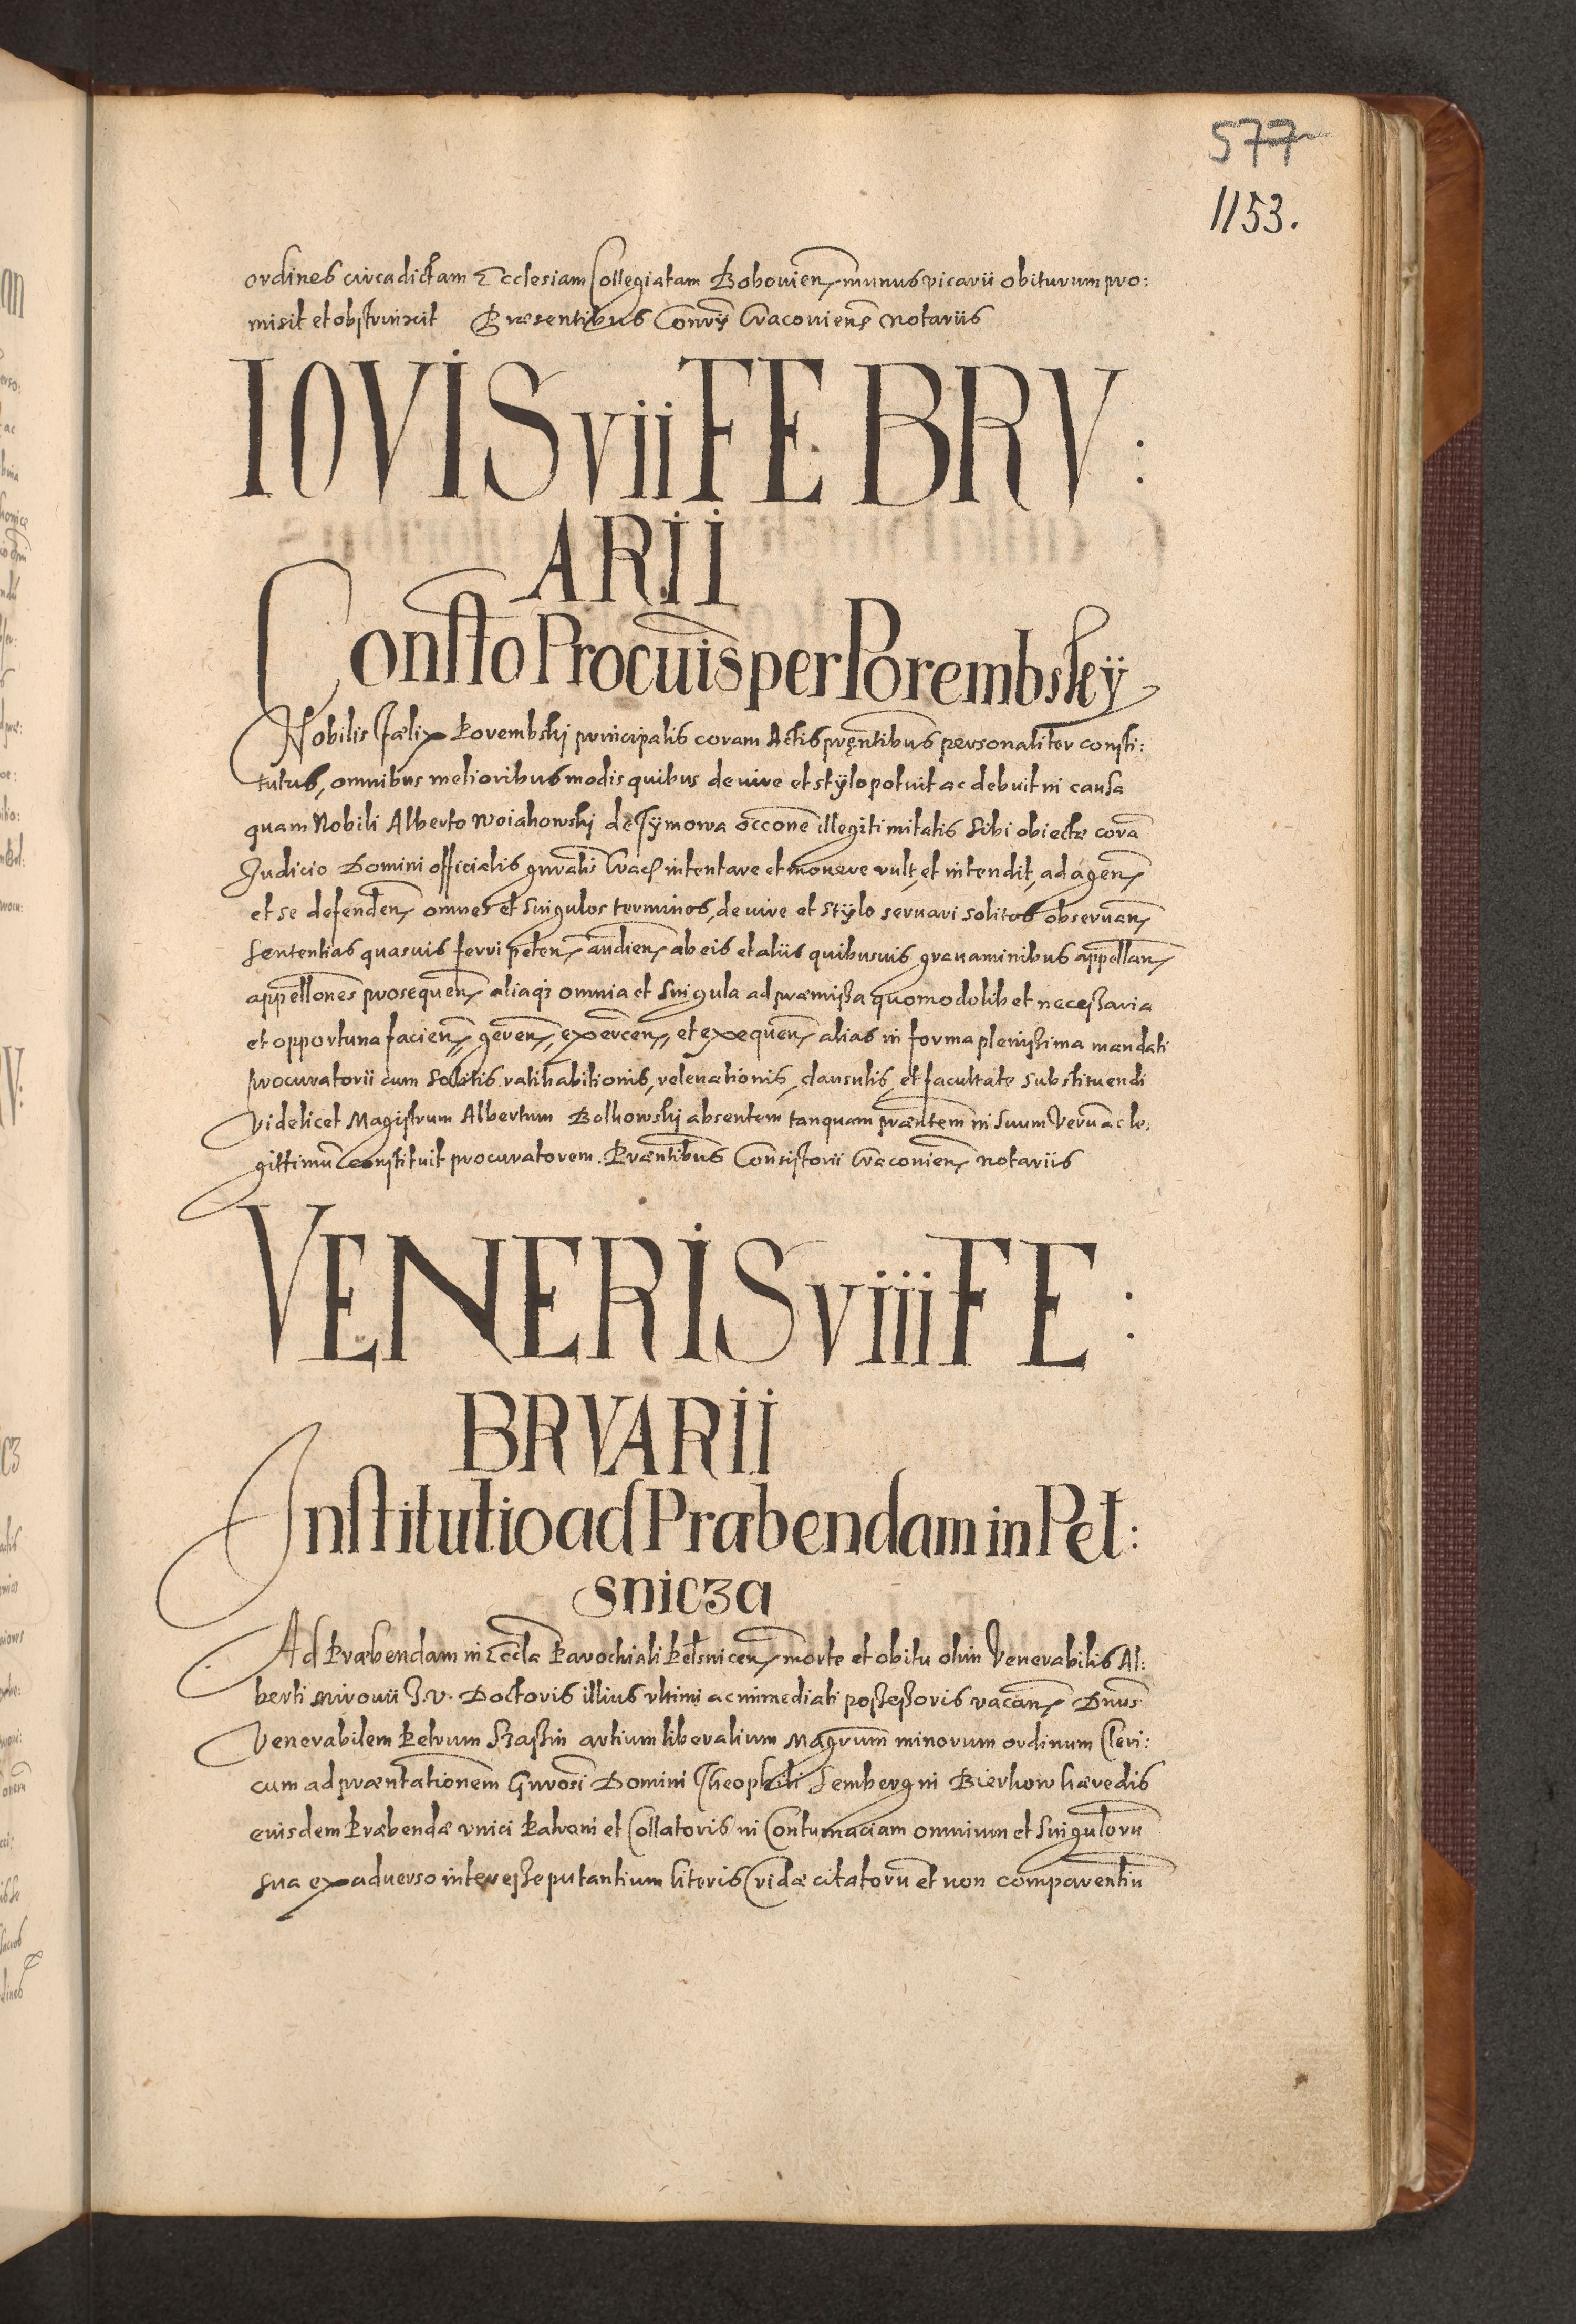 577
1153.
ordines circa dictam Ecclesiam Collegiatam Bobouien munus vicarii obiturum pro:
misit et obstrinxit Præsentibus Conrÿ Cracouiens notariis
IOVIS vii FEBRV:
ARII
Constō Procuīs per Porembskÿ
Nobilis Fælix Porembski principalis coram Actis pręntibus personaliter consti:
tutus, omnibus melioribus modis quibus de iure et stÿlo potuit ac debuit in causa
quam Nobili Alberto Woiakowski de Tÿmowa occone illegitimitatis sibi obiectæ corā
Judicio Domini officialis gnralis Crac intentare et mouere vult, et intendit, ad agen
et se defenden omnes et singulos terminos, de iure et stÿlo seruari solitos obseruan
sententias quasuis ferri peten audien ab eis et aliis quibusuis grauaminibus appellan
appellones prosequen aliaqз omnia et singula ad præmissa quomodolibet necessaria
et opportuna facien, geren, exercen, et exequen alias in forma plenissima mandati
procuratorii cum solitis ratihabitionis, releuationis, clausulis, et facultate substituendi
Videlicet Magistrum Albertum Bolhowski absentem tanquam præntem in suum Verū ac le:
gittimū constituit procuratorem. Præntibus Consistorii Cracouien notariis
VENERIS viii FE:
BRVARII
Institutio ad Præbendam in Pet:
snicza
Ad Præbendam in Eccla Parochiali Petsnicen morte et obitu olim Venerabilis Al:
berti Mirouii J.V. Doctoris illius vltimi ac immediati possessoris vacan Dnus
Venerabilem Petrum Skassin artium liberalium Magrum minorum ordinum Cleri:
cum ad præntationem Gnrosi Domini Theophili Semberg in Bierkow hæredis
eiusdem Præbendæ vnici Patroni et Collatoris in Contumaciam omnium et singulorū
sua ex aduerso interesse putantium literis Cridæ citatorū et non comparentiū